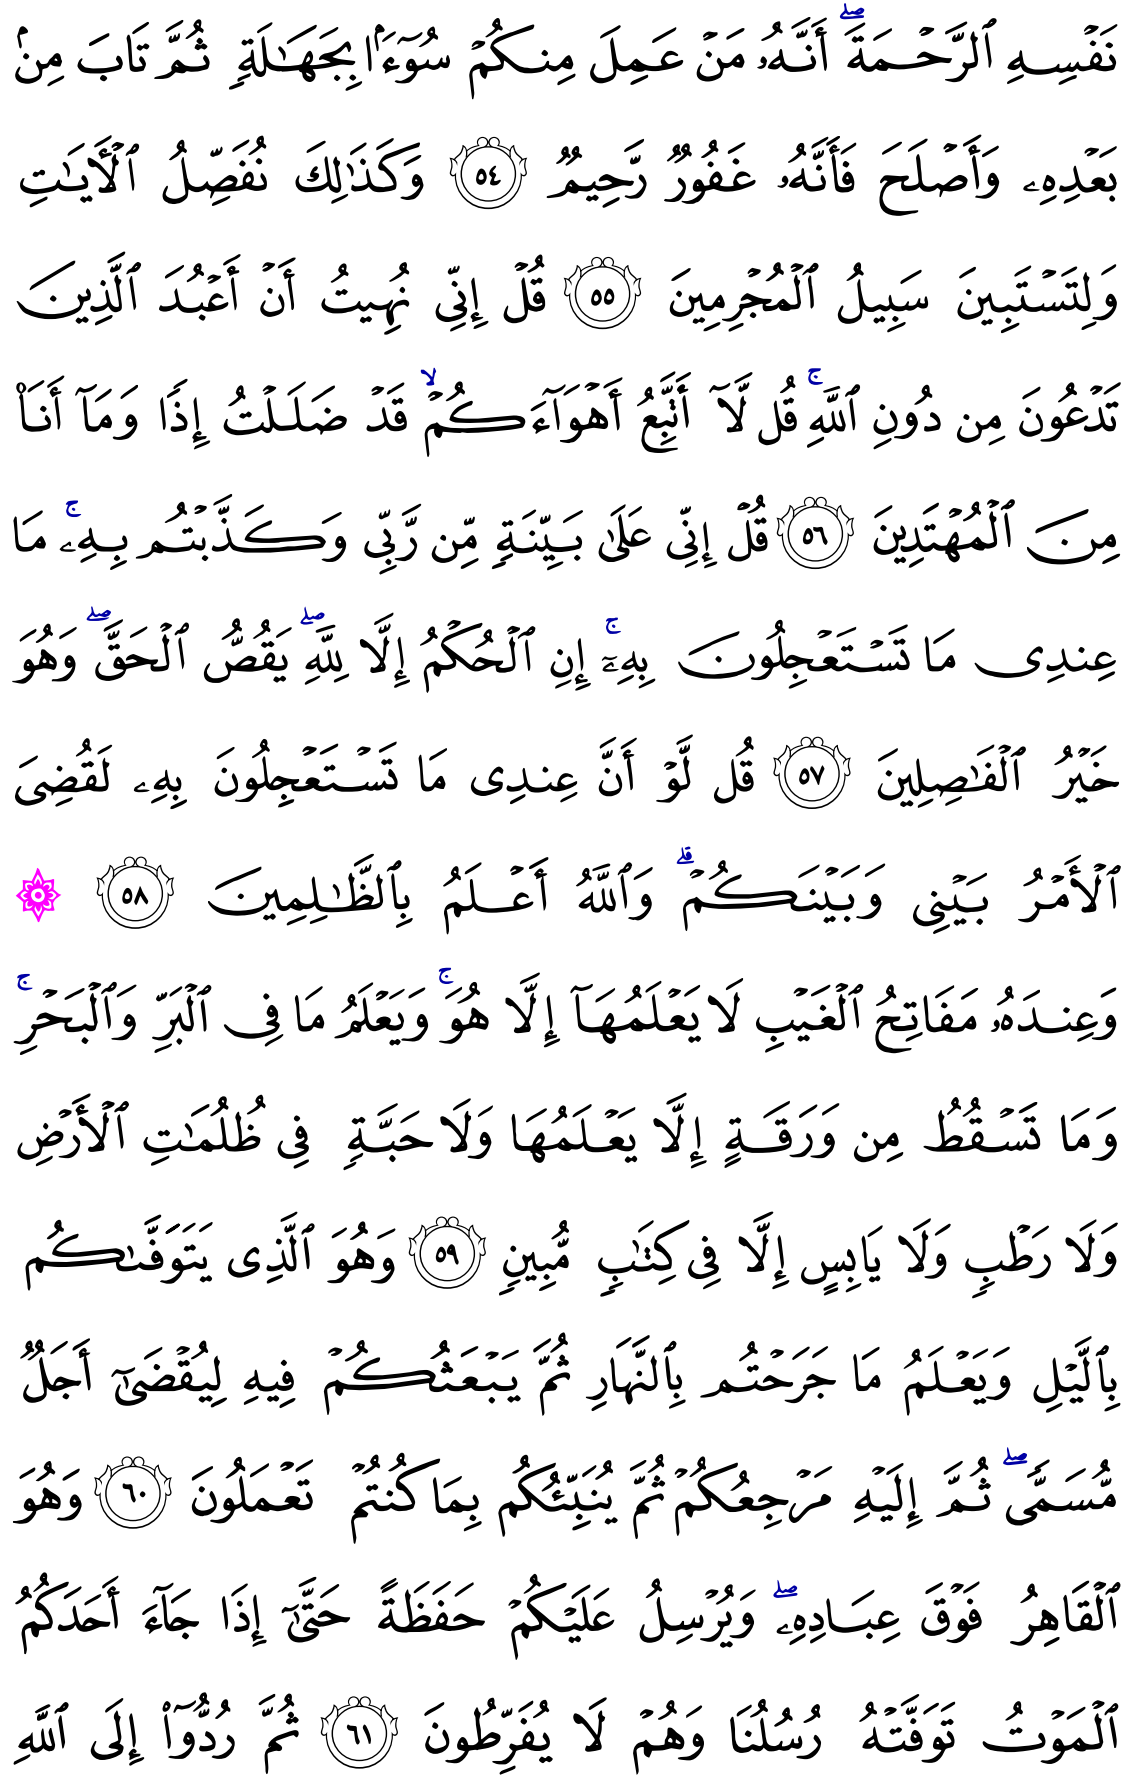 نَفۡسِهِ ٱلرَّحۡمَةَۖ أَنَّهُۥ مَنۡ عَمِلَ مِنكُمۡ سُوٓءَۢا بِجَهَٰلَةٖ ثُمَّ تَابَ مِنۢ
بَعۡدِهِۦ وَأَصۡلَحَ فَأَنَّهُۥ غَفُورٞ رَّحِيمٞ ٥٤ وَكَذَٰلِكَ نُفَصِّلُ ٱلۡأٓيَٰتِ
وَلِتَسۡتَبِينَ سَبِيلُ ٱلۡمُجۡرِمِينَ ٥٥ قُلۡ إِنِّي نُهِيتُ أَنۡ أَعۡبُدَ ٱلَّذِينَ
تَدۡعُونَ مِن دُونِ ٱللَّهِۚ قُل لَّآ أَتَّبِعُ أَهۡوَآءَكُمۡۙ قَدۡ ضَلَلۡتُ إِذٗا وَمَآ أَنَا۠
مِنَ ٱلۡمُهۡتَدِينَ ٥٦ قُلۡ إِنِّي عَلَىٰ بَيِّنَةٖ مِّن رَّبِّي وَكَذَّبۡتُم بِهِۦۚ مَا
عِندِي مَا تَسۡتَعۡجِلُونَ بِهِۦٓۚ إِنِ ٱلۡحُكۡمُ إِلَّا لِلَّهِۖ يَقُصُّ ٱلۡحَقَّۖ وَهُوَ
خَيۡرُ ٱلۡفَٰصِلِينَ ٥٧ قُل لَّوۡ أَنَّ عِندِي مَا تَسۡتَعۡجِلُونَ بِهِۦ لَقُضِيَ
ٱلۡأَمۡرُ بَيۡنِي وَبَيۡنَكُمۡۗ وَٱللَّهُ أَعۡلَمُ بِٱلظَّٰلِمِينَ ٥٨ ۞
وَعِندَهُۥ مَفَاتِحُ ٱلۡغَيۡبِ لَا يَعۡلَمُهَآ إِلَّا هُوَۚ وَيَعۡلَمُ مَا فِي ٱلۡبَرِّ وَٱلۡبَحۡرِۚ
وَمَا تَسۡقُطُ مِن وَرَقَةٍ إِلَّا يَعۡلَمُهَا وَلَا حَبَّةٖ فِي ظُلُمَٰتِ ٱلۡأَرۡضِ
وَلَا رَطۡبٖ وَلَا يَابِسٍ إِلَّا فِي كِتَٰبٖ مُّبِينٖ ٥٩ وَهُوَ ٱلَّذِي يَتَوَفَّىٰكُم
بِٱلَّيۡلِ وَيَعۡلَمُ مَا جَرَحۡتُم بِٱلنَّهَارِ ثُمَّ يَبۡعَثُكُمۡ فِيهِ لِيُقۡضَىٰٓ أَجَلٞ
مُّسَمّٗىۖ ثُمَّ إِلَيۡهِ مَرۡجِعُكُمۡ ثُمَّ يُنَبِّئُكُم بِمَا كُنتُمۡ تَعۡمَلُونَ ٦٠ وَهُوَ
ٱلۡقَاهِرُ فَوۡقَ عِبَادِهِۦۖ وَيُرۡسِلُ عَلَيۡكُمۡ حَفَظَةً حَتَّىٰٓ إِذَا جَآءَ أَحَدَكُمُ
ٱلۡمَوۡتُ تَوَفَّتۡهُ رُسُلُنَا وَهُمۡ لَا يُفَرِّطُونَ ٦١ ثُمَّ رُدُّوٓاْ إِلَى ٱللَّهِ